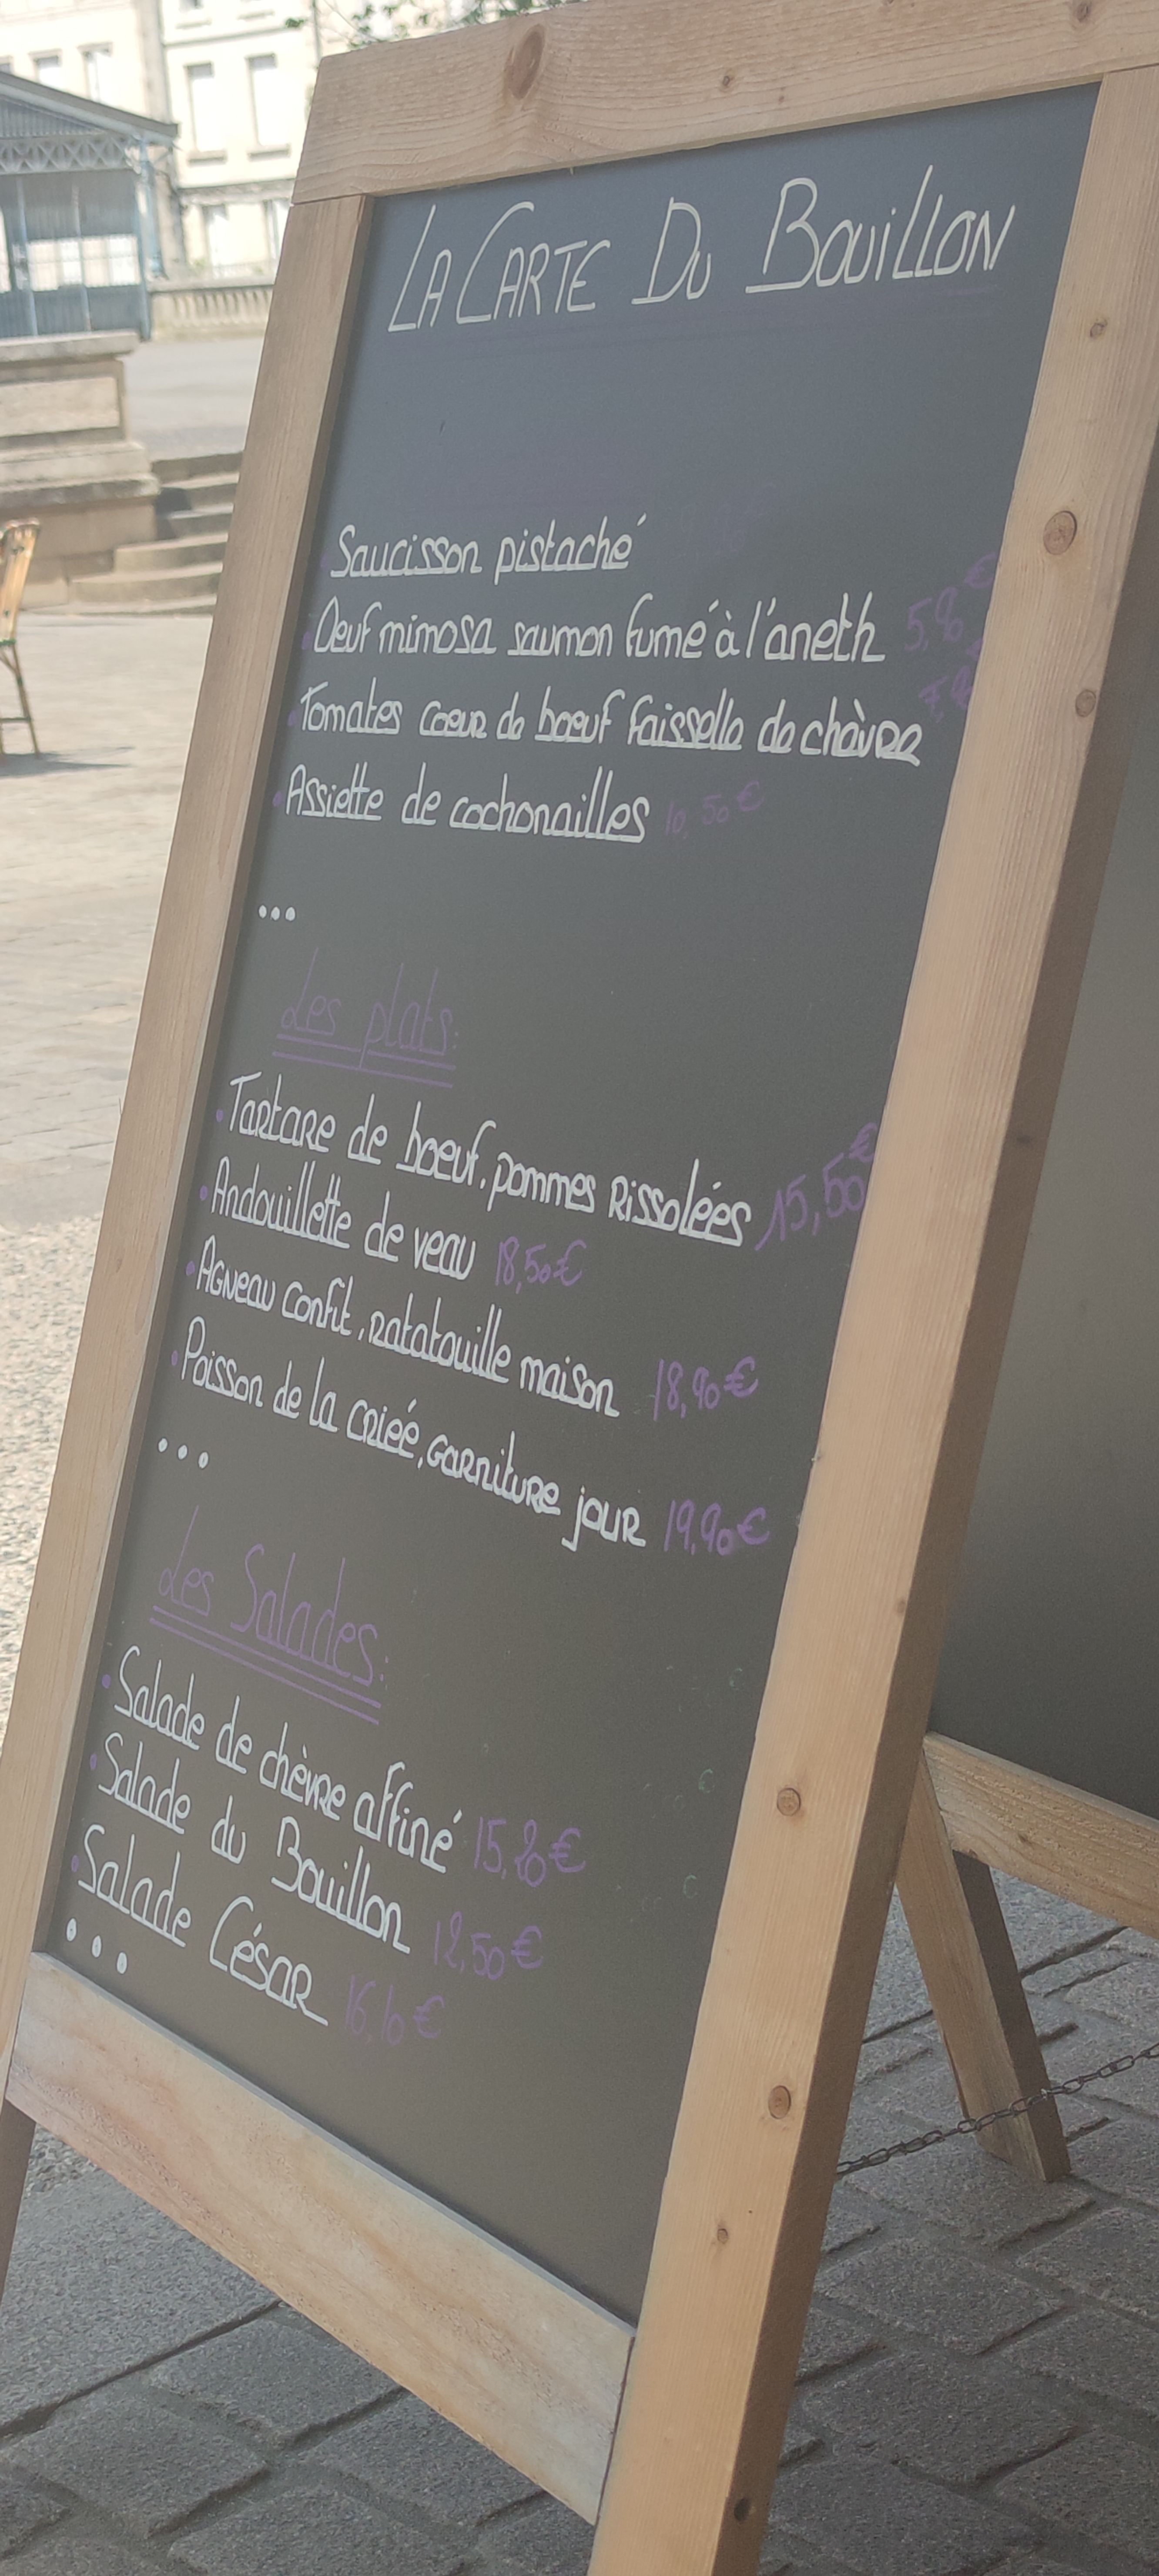 LA CARTE DU BOUILLON
Saucisson pistaché
Oeuf mimosa saumon fumé à l'aneth
Tomates coeur de boeuf faisselle de chèvre
Assiette de cochonailles 10,50€
...
Les plats:
Tartare de boeuf, pommes Rissolées 15,50€
Andouillette de veau 18,50€
Agneau confit, ratatouille maison 18,90€
Poisson de la crieé, garniture jour 19,90€
...
Les Salades:
Salade de chèvre affiné
Salade du Bouillon 12,50€
Salade César 16,10€
...